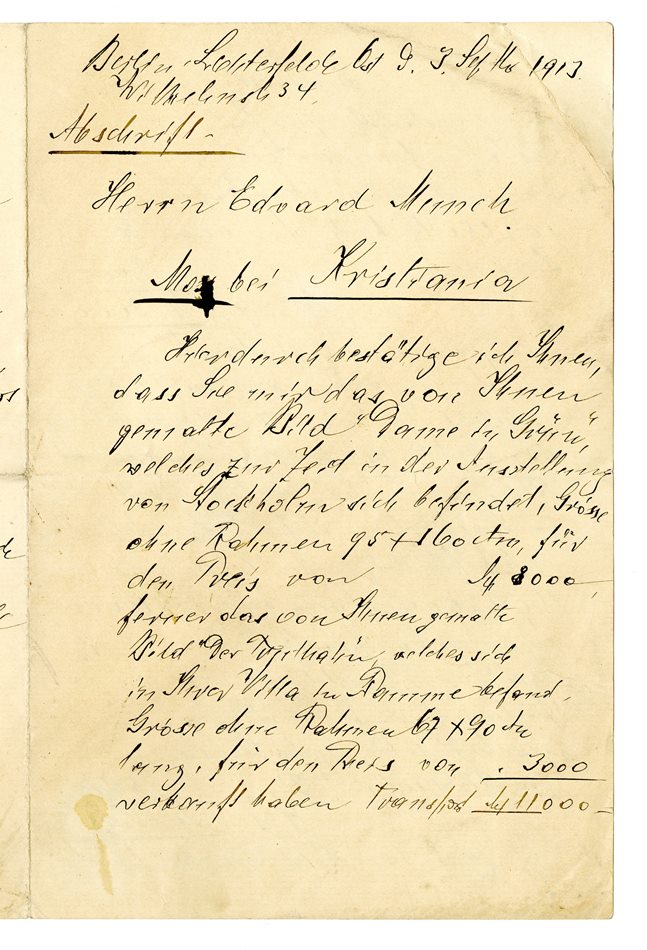 Berlin-Lichterfelde Ost d. 3. Septb 1913.
Wilhelmstr 34.
Abschrift-
Herrn Edvard Munch
Moss bei Kristiania
Hierdurch bestätige ich Ihnen,
dass Sie mir das von Ihnen
gemalte Bild "Dame in Grün",
welches zur Zeit in der Ausstellung
von Stockholm sich befindet, Grösse
ohne Rahmen 95 + 160 ctm, für
den Preis von M 8000,
ferner das von Ihnen gemalte
Bild "Der welches sich
in Ihrer Villa in Ramme befand.
Grösse ohne Rahmen 67 + 90 ctm
lang, für den Preis von . 3000
verkauft haben Transport M 11000-